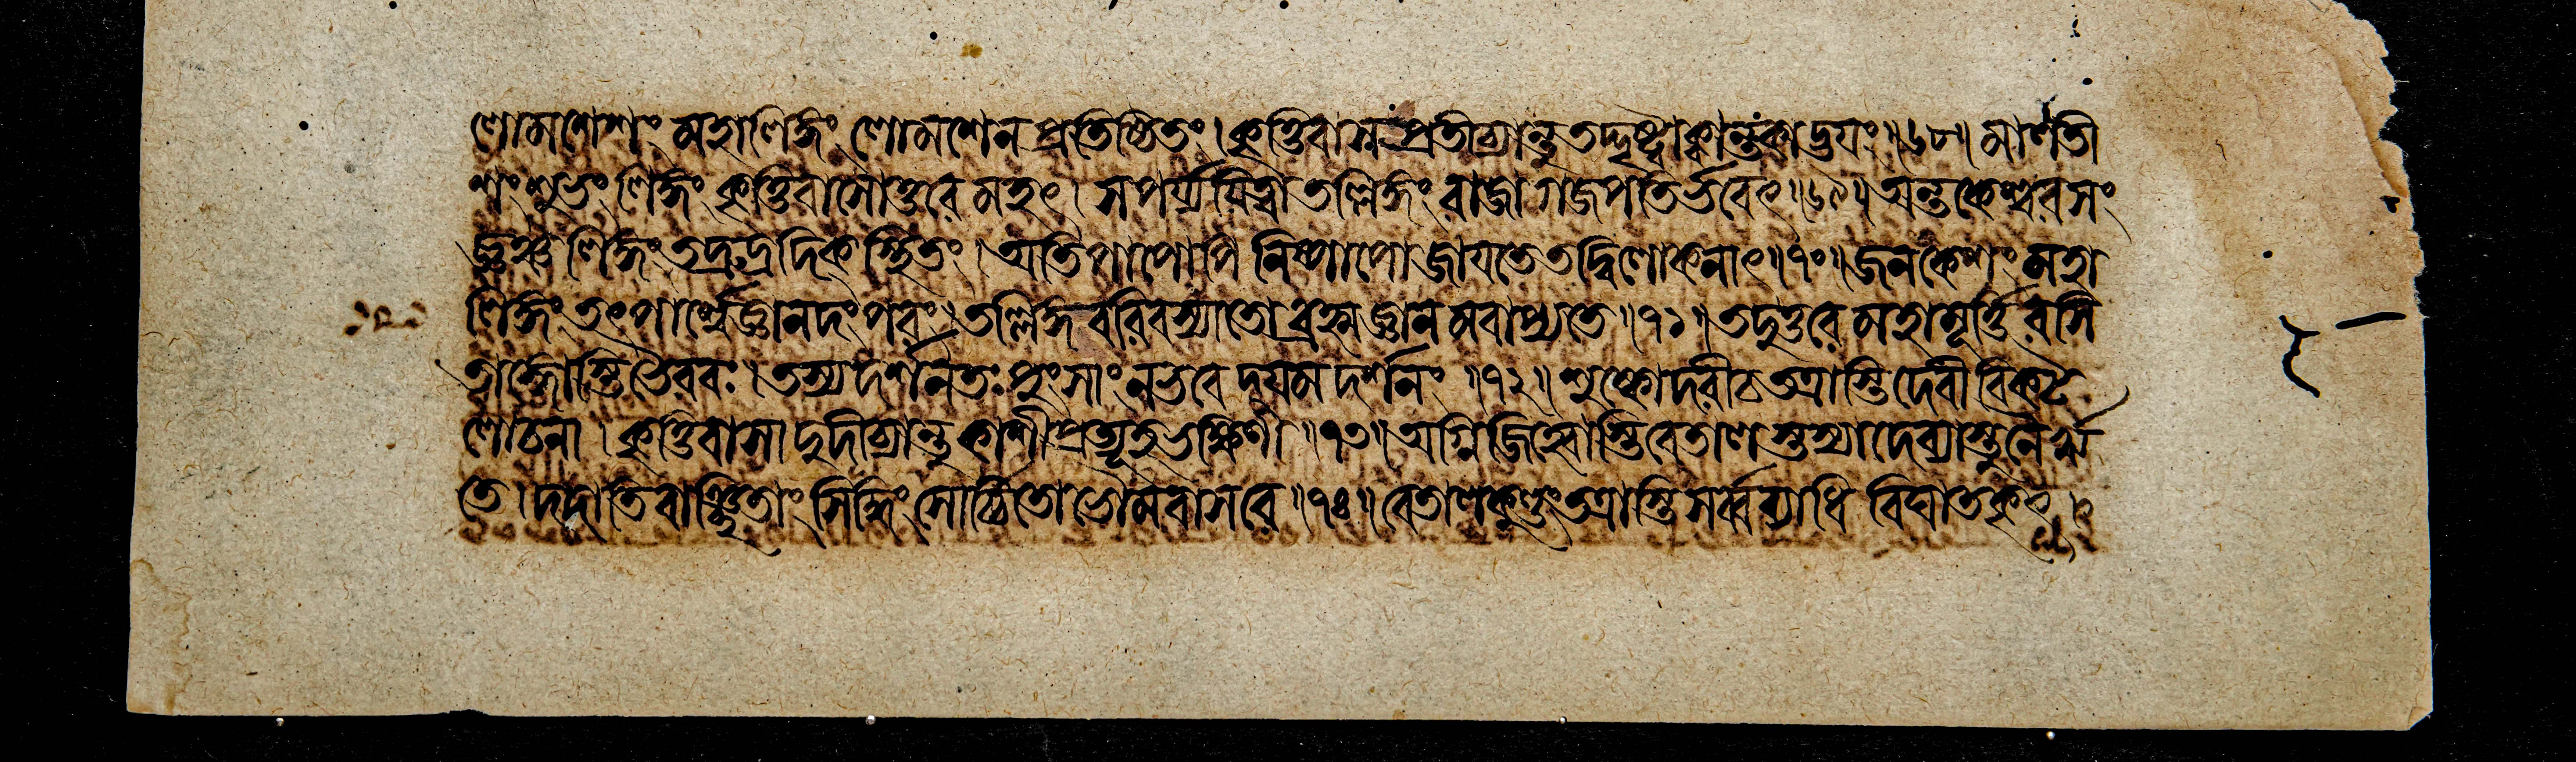 লোমশেশং মহালিঙ্গং লোমশেন প্রতিষ্ঠিতং । কৃত্তিবাসঃ প্রতীচ্যান্তু তদ্দৃষ্ট্বা ক্বান্তকাদ্ভয়ং ॥ ৬৮ ॥ মালতী
শং শুভং লিঙ্গং কৃত্তিবাসোত্তরে মহৎ । সপর্য্যয়িত্বা তল্লিঙ্গং রাজা গজপতির্ভবেৎ ॥ ৬৯ ॥ অন্তকেশ্বরসং
জ্ঞঞ্চ লিঙ্গং তদ্রুদ্রদিকস্থিতং । অতিপাপোপি নিষ্পাপো জায়তে তদ্বিলোকনাৎ ॥ ৭০ ॥ জনকেশং মহা
লিঙ্গং তৎপার্শ্বে জ্ঞানদং পরং । তল্লিঙ্গবরিবস্যাতো ব্রহ্মজ্ঞানমবাপ্যতে ॥ ৭১ ॥ তদুত্তরে মহামূর্ত্তিরসি
তাঙ্গোস্তি ভৈরবঃ । তস্য দর্শনতঃ পুংসাং ন ভবেদ্যমদর্শনং ॥ ৭২ ॥ শুষ্কোদরী চ তত্রাস্তি দেবী বিকট
লোচনা । কৃত্তিবাসাদুদীচ্যান্তু কাশীপ্রত্যূহভক্ষিণী ॥ ৭৩ ॥ অগ্নিজিহ্বোস্তি বেতালস্তস্যা দেব্যাস্তু নৈরৃ
তে । দদাতি বাঞ্ছিতাং সিদ্ধিং সোর্চ্চিতো ভৌমবাসরে ॥ ৭৪ ॥ বেতালকুণ্ডং তত্রাস্তি সর্ব্বব্যাধি বিঘাতকৃৎ ।